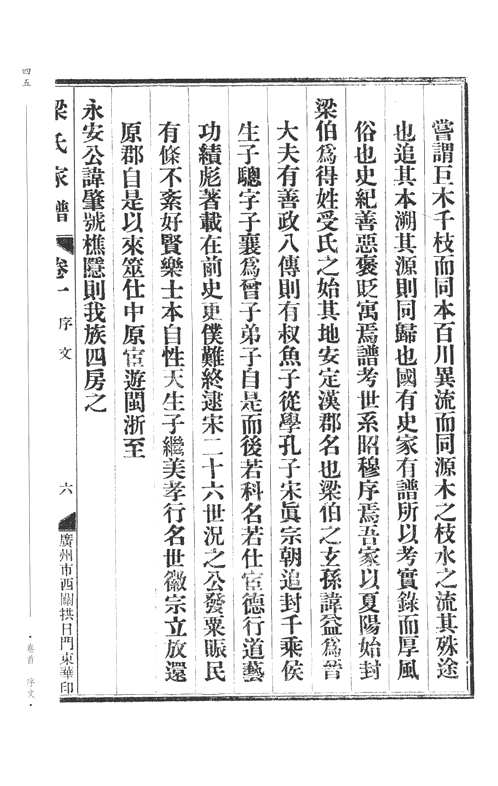 嘗謂巨木千枝而同本百川異流而同源木之枝水之流其殊途
也追其本溯其源則同歸也國有史家有譜所以考實錄而厚風
俗也史紀善惡褒貶寓焉譜考世系昭穆序焉吾家以夏陽始封
梁伯爲得姓受氏之始其地安定漢郡名也梁伯之玄孫諱益爲晉
大夫有善政八傳則有叔魚子從學孔子宋眞宗朝追封千乘侯
生子驄字子襄爲曾子弟子自是而後若科名若仕宦德行道藝
功績彪著載在前史更僕難終逮宋二十六世況之公發粟賑民
有條不紊好賢樂士本自性天生子繼美孝行名世徽宗立放還
原郡自是以來筮仕中原宦遊閩浙至
永安公諱肇號樵隱則我族四房之
梁氏家譜 卷一 序文 六 廣州市西關拱日門東華印
四五
·卷首 序文·